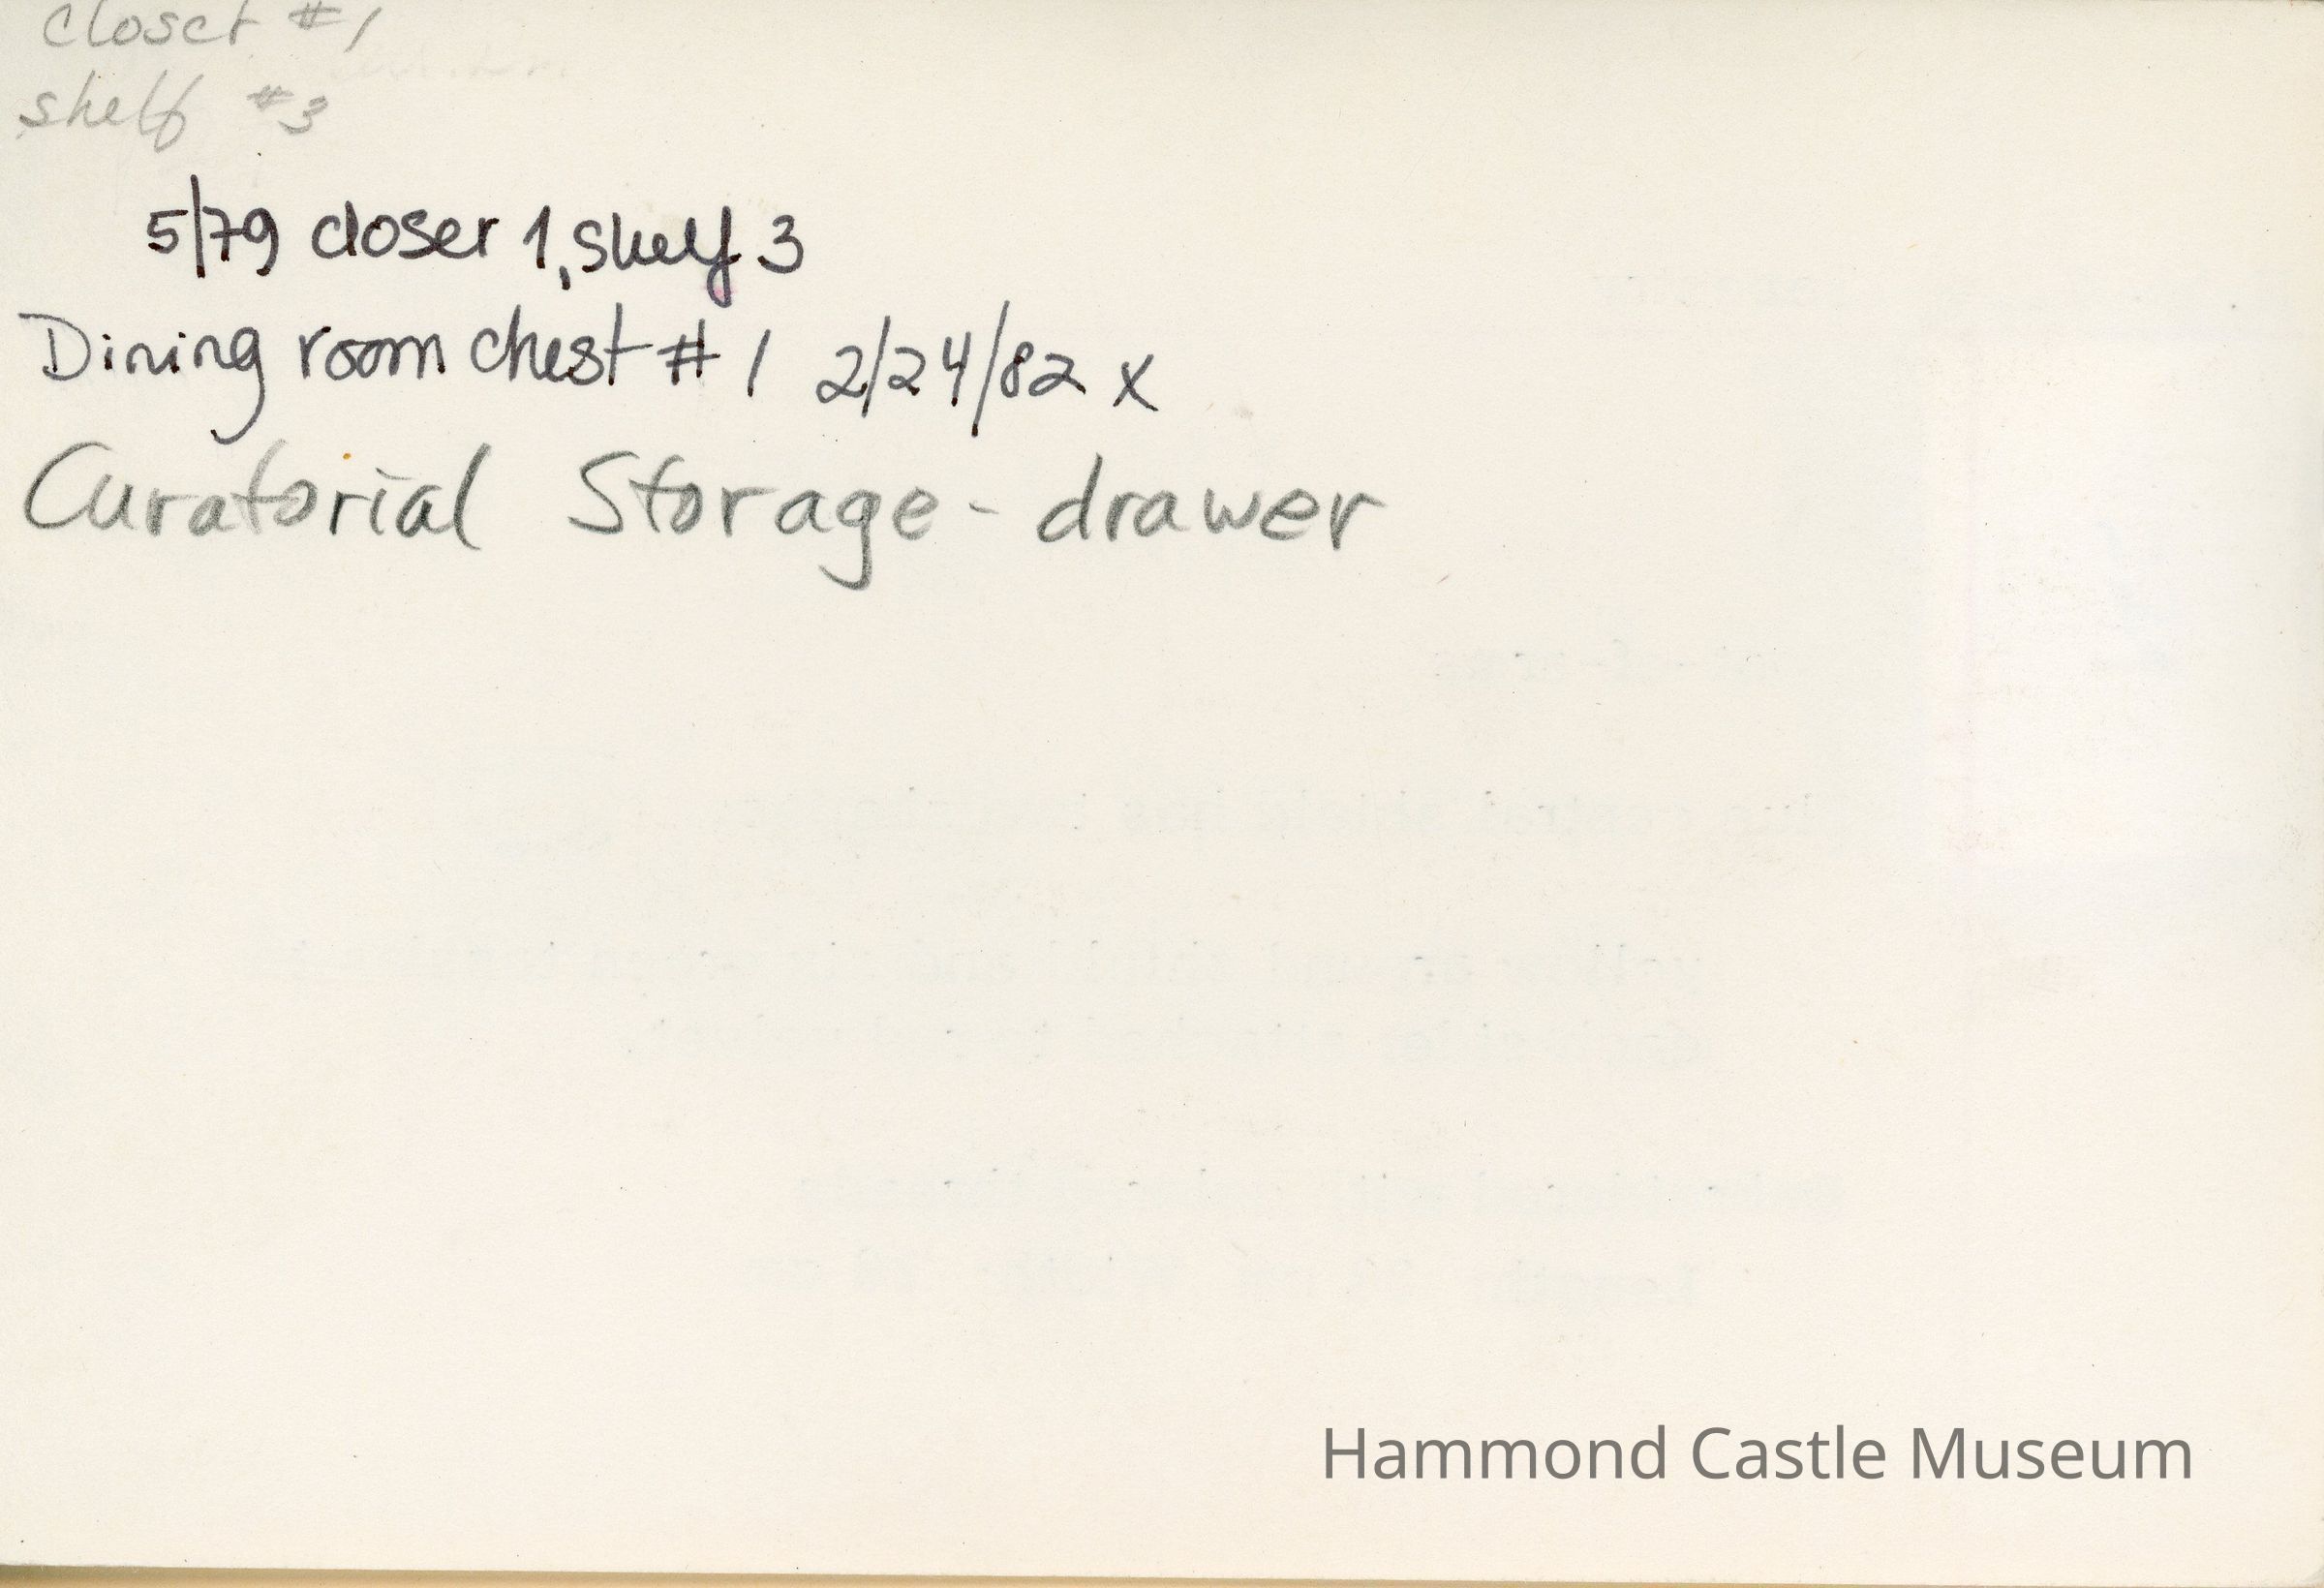 closet #1
shelf #3
5/79 closer 1, shelf 3
Dining room chest #1 2/24/82 x
Curatorial Storage - drawer
Hammond Castle Museum